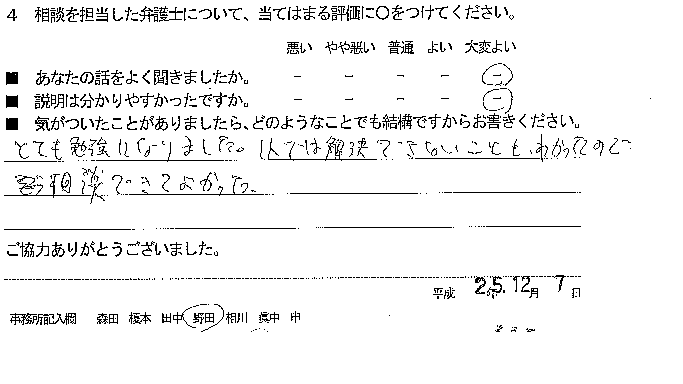 4 相談を担当した弁護士について、当てはまる評価に〇をつけてください。
悪い やや悪い 普通 よい 大変よい
■ あなたの話をよく聞きましたか。 － － － － －
■ 説明は分かりやすかったですか。 － － － － －
■ 気がついたことがありましたら、どのようなことでも結構ですからお書きください。
とても勉強になりました。1人では解決できないこともわかったので
相談できてよかった。
ご協力ありがとうございました。
平成 25年12月 7日
事務所記入欄 森田 榎本 田中 野田 相川 眞中 申